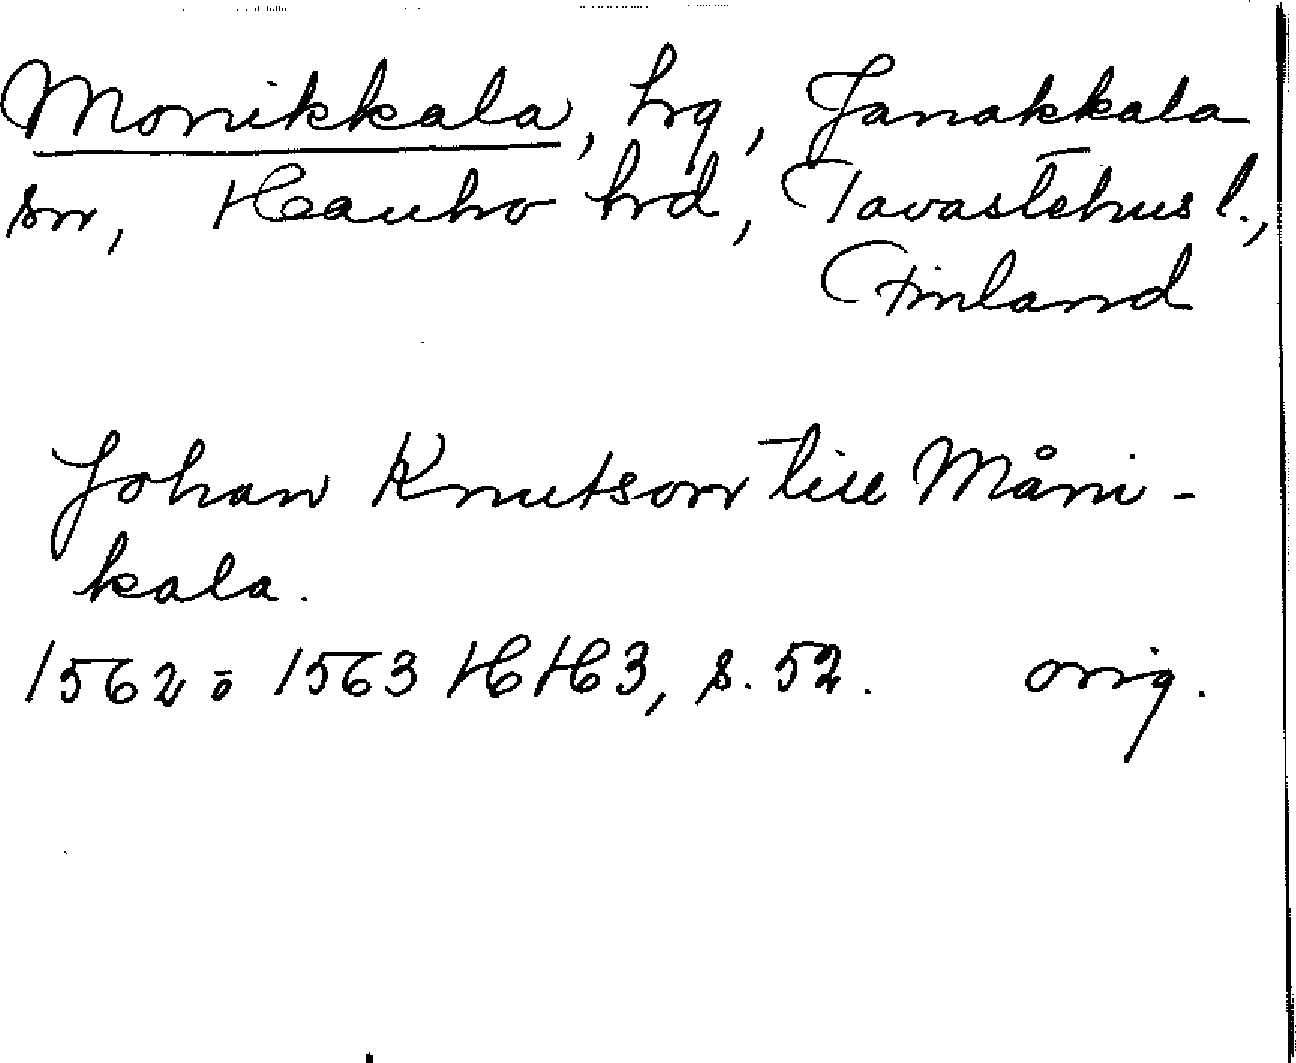 Monikkala, hrg, Janakkala
sn, Hauho hrd, Tavastehus l.,
Finland
Johan Knutson till Måni-
kala.
1562 ö 1563 HH3, s. 52. orig.